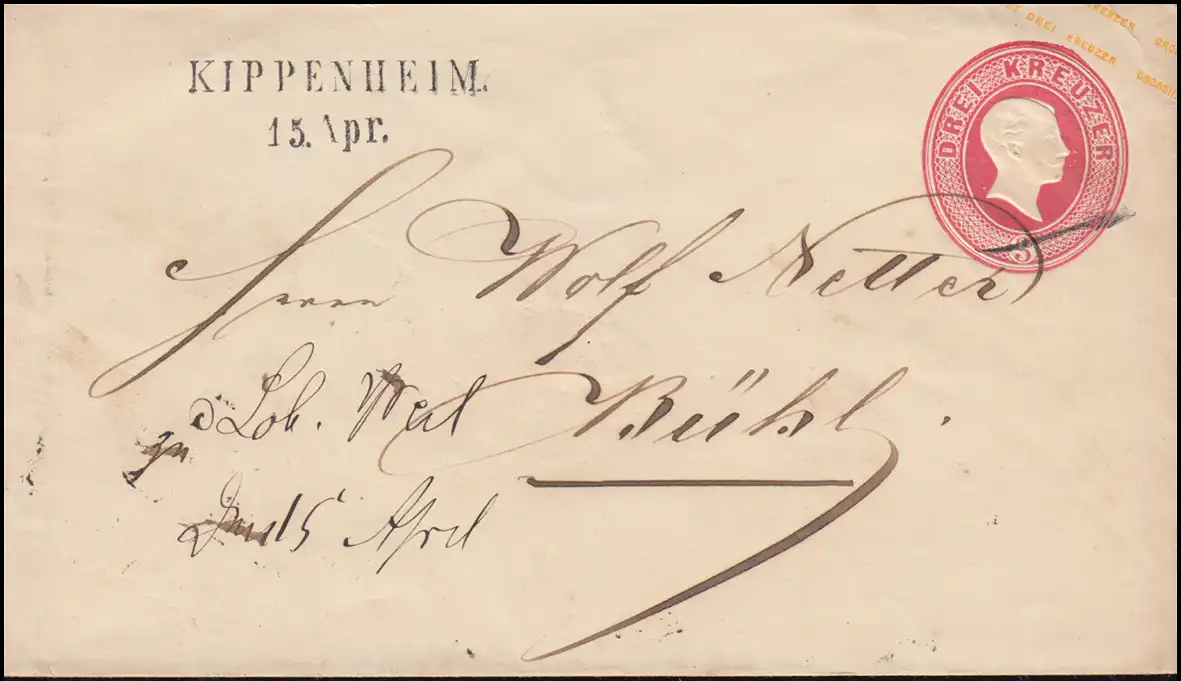 KIPPENHEIM.
15. Apr.
DREI KREUZER
3
DREI KREUZER GROSSH
Herrn Wolf Netter
Bühl.
Lob. Weil
zu
15 April